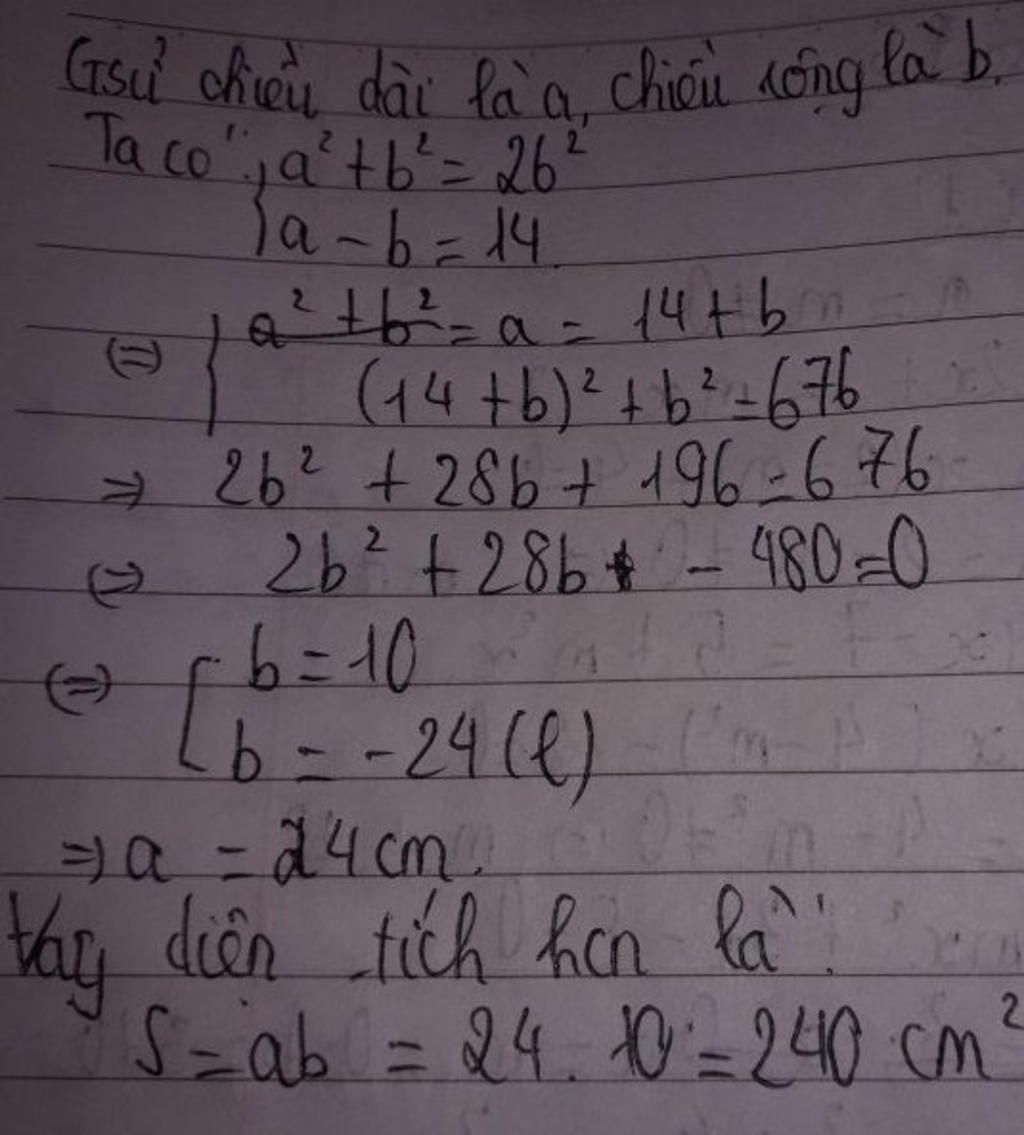 Gsử chiều dài là a, chiều rộng là b.
Ta có: { a² + b² = 26²
a - b = 14
(=) { a = 14 + b
(14 + b)² + b² = 676
=> 2b² + 28b + 196 = 676
(=) 2b² + 28b - 480 = 0
(=) [ b = 10
b = -24 (l)
=> a = 24 cm.
Vậy diện tích hcn là:
S = ab = 24 . 10 = 240 cm²